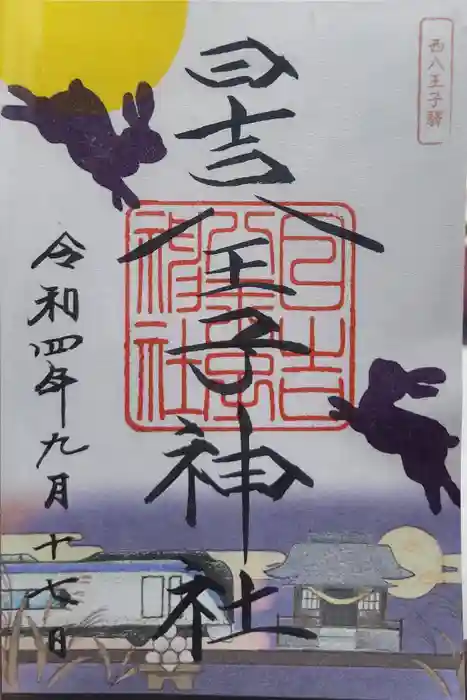 西八王子驛
日吉八王子神社
日吉八王子神社
令和四年九月十七日